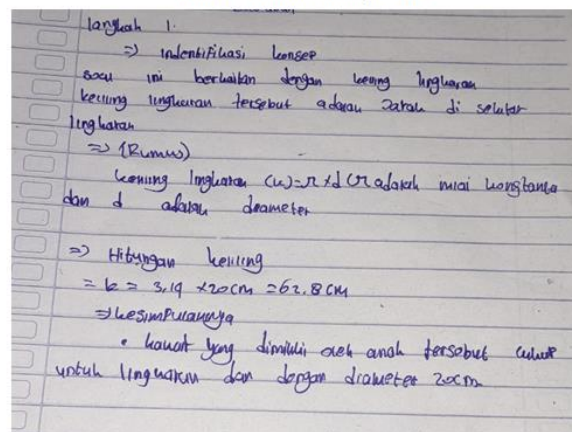 langkah 1.
=> indentifikasi konsep
soal ini berkaitan dengan keliling lingkaran
keliling lingkaran tersebut adalah Jarak di sekitar
lingkaran
=> (Rumus)
keliling lingkaran (k) = π x d (π adalah nilai konstanta
dan d adalah diameter
=> Hitungan keliling
= k = 3,14 x 20 cm = 62,8 cm
=> kesimpulannya
• kawat yang dimiliki oleh anak tersebut cukup
untuk lingkaran dan dengan diameter 20cm